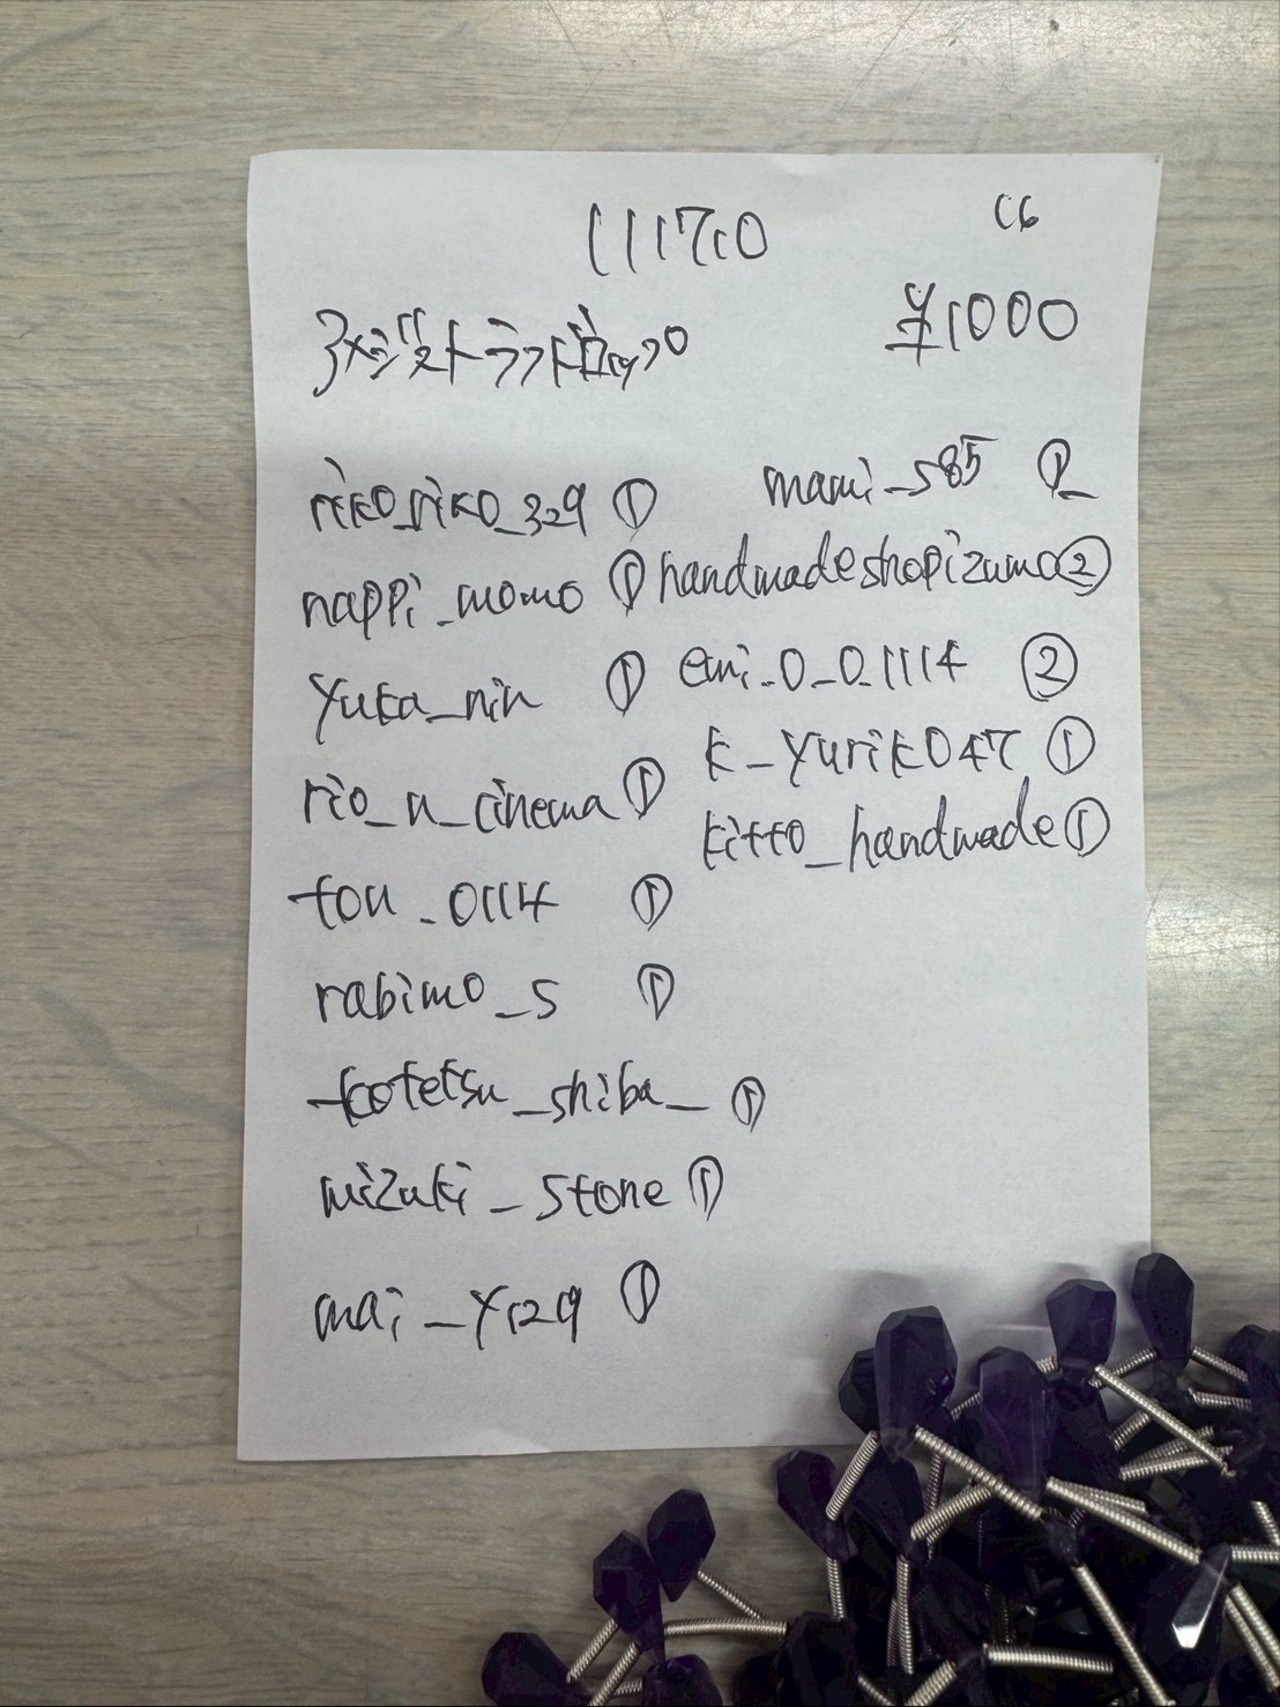 111710
C6
¥1000
アメジストラフドロップ
riko_riko_329 ①
nappi_momo ①
yuka_nin ①
rio_n_cinema ①
tou_0114 ①
rabimo_s ①
kotetsu_shiba_ ①
mizuki_stone ①
mai_y129 ①
mami_s85 ①
handmadeshopizumo ②
emi_0_0_1114 ②
k_yuriko47 ①
kitto_handmade ①